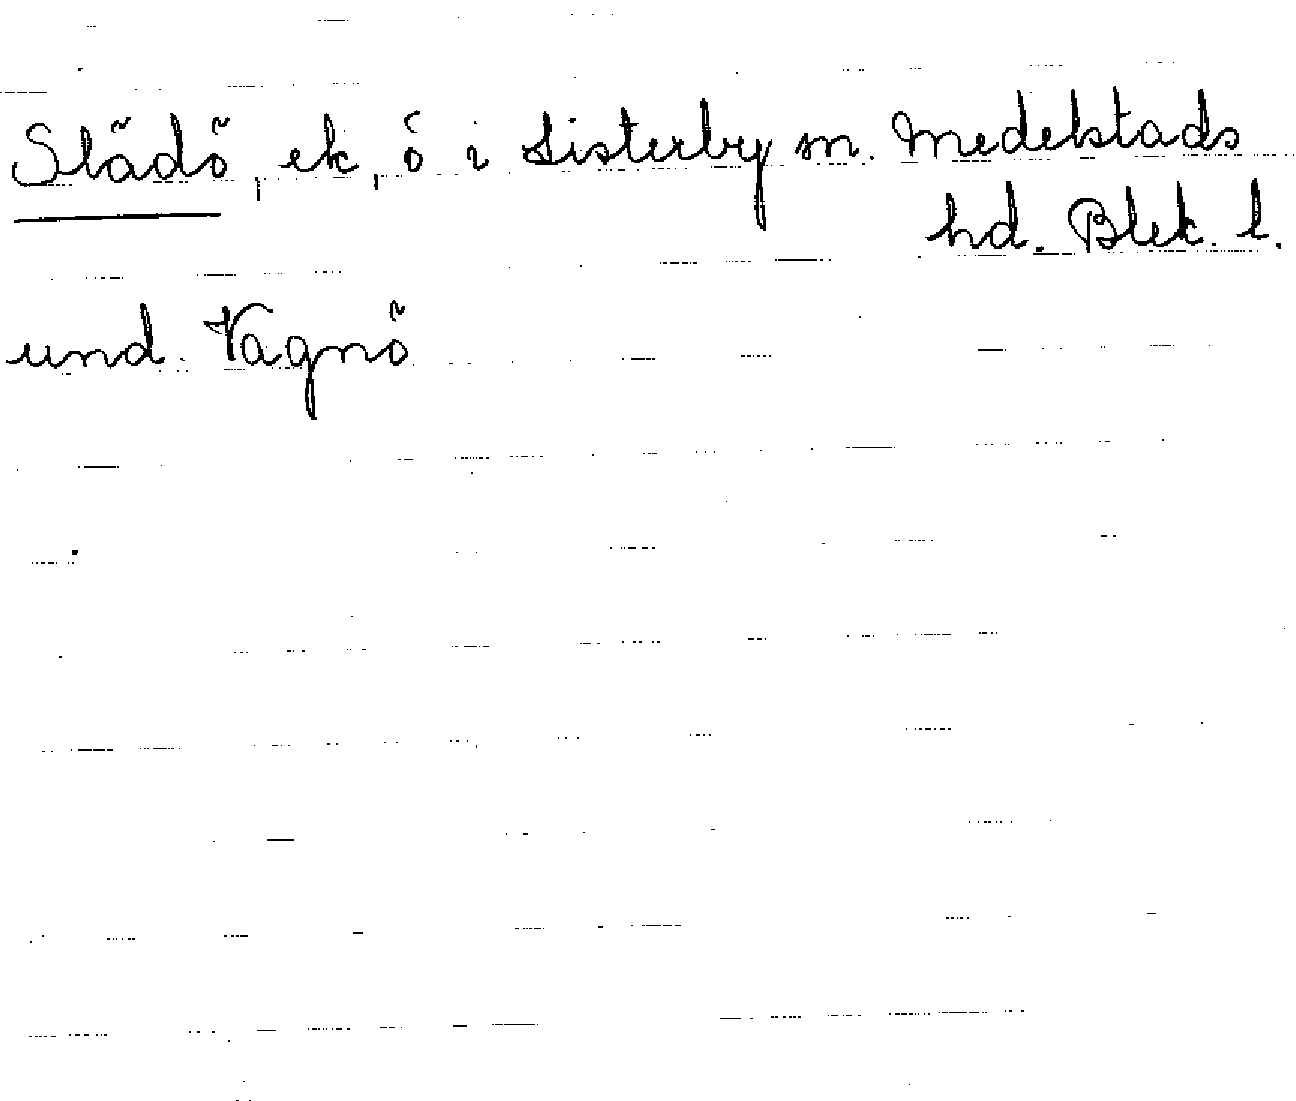 Slädö, ek, ö i Listerby sn. Medelstads
hd. Blek. l.
und. Vagnö